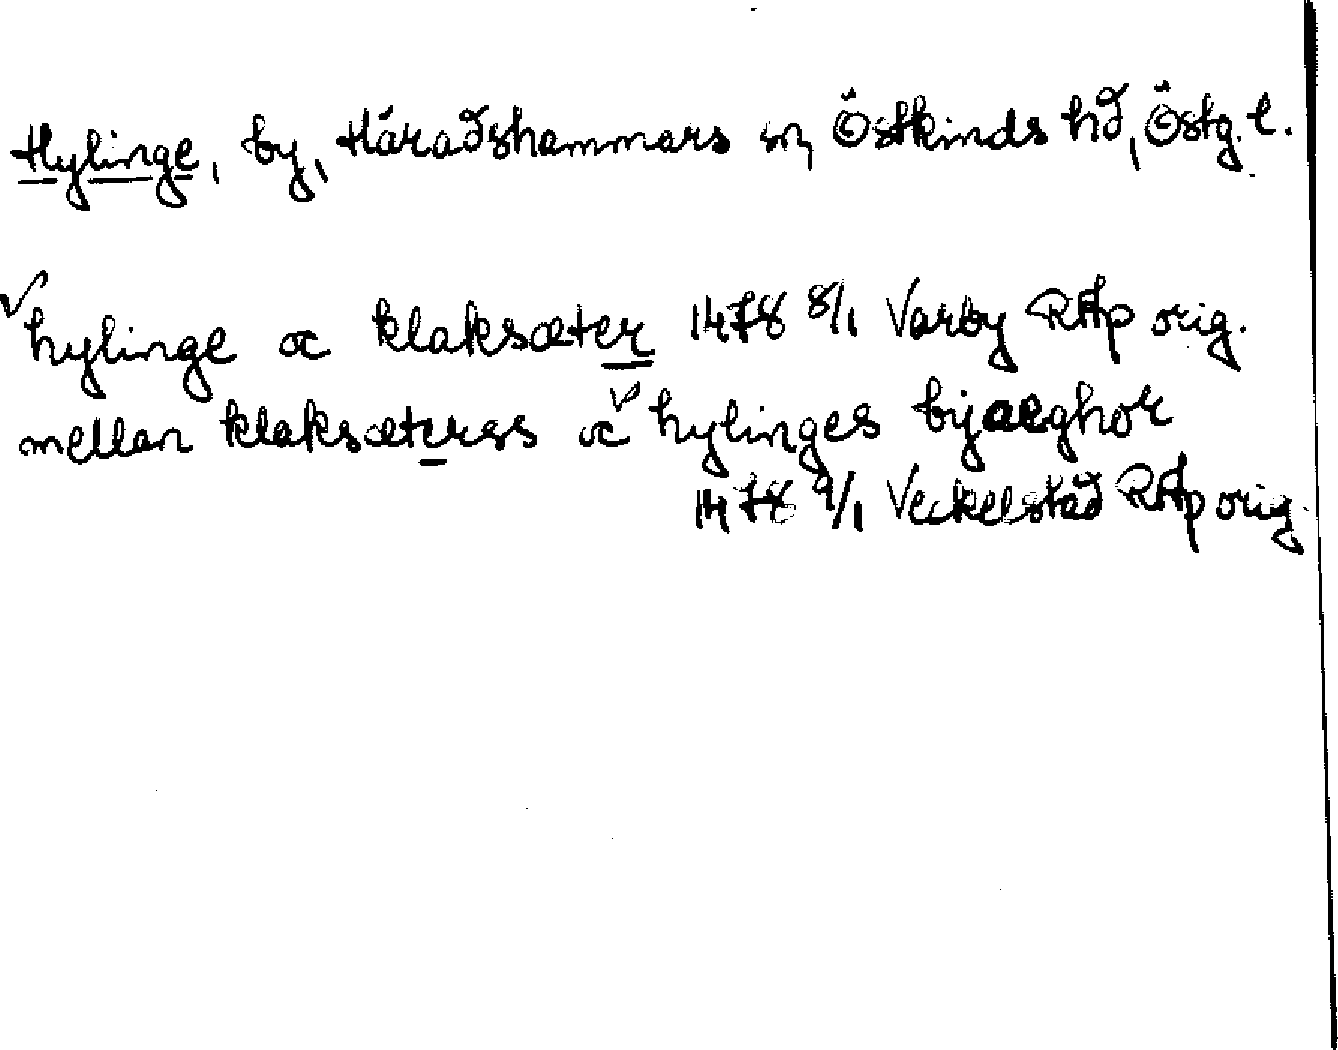 Hylinge, by, Häradshammars sn, Östkinds hd, Östg. l.
hylinge oc klaksæter 1478 8/1 Varby RAp orig.
mellan klaksæterss oc hylinges byaeghor
1478 9/1 Veckelstad RAp orig.